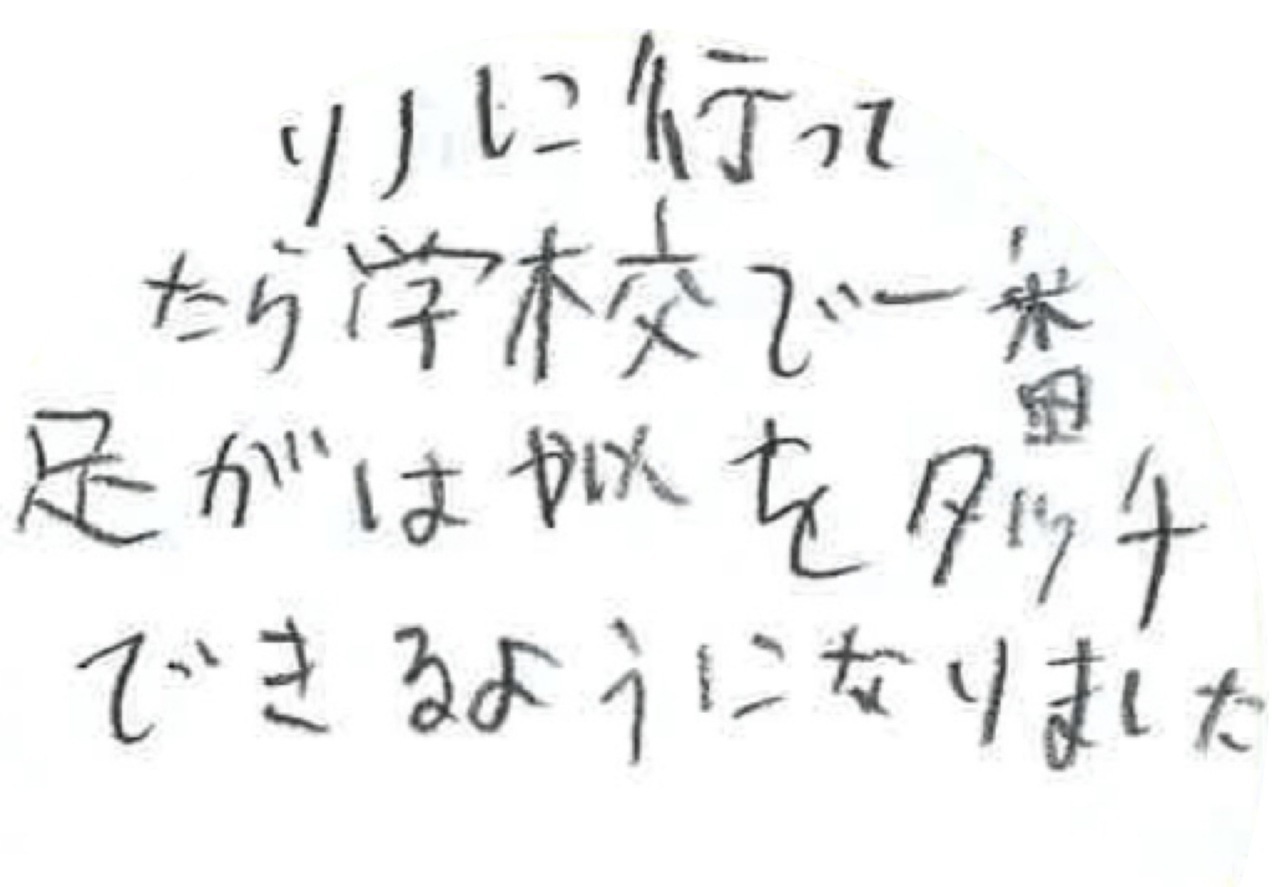 リノに行って
たら学校で一番
足がはやくをタッチ
できるようになりました